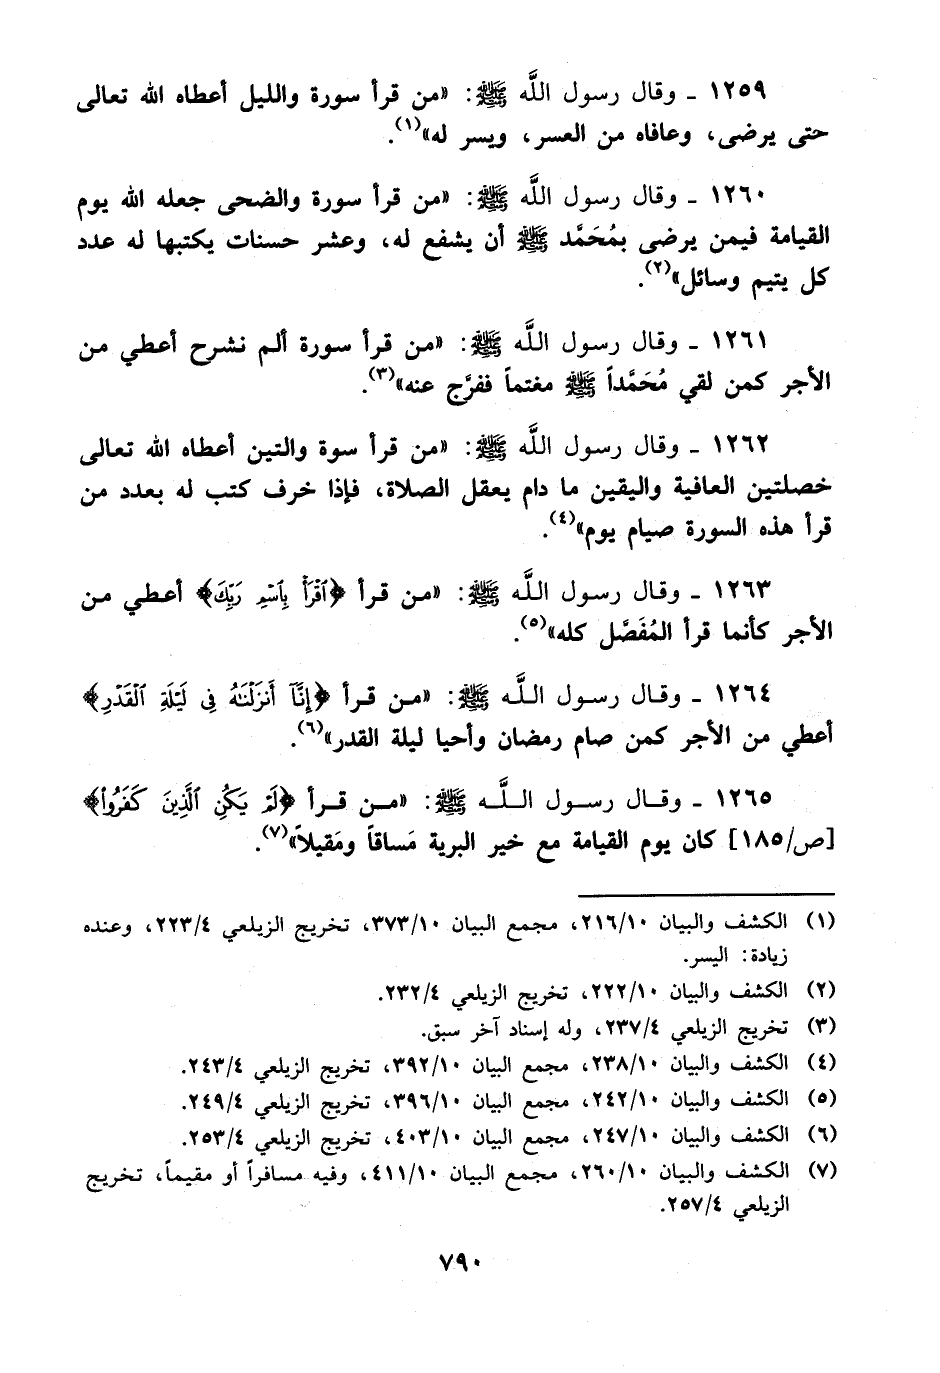 ١٢٥٩ ـ وقال رسول اللَّه ﷺ: «من قرأ سورة والليل أعطاه الله تعالى
حتى يرضى، وعافاه من العسر، ويسر له»(١).
١٢٦٠ ـ وقال رسول اللَّه ﷺ: «من قرأ سورة والضحى جعله الله يوم
القيامة فيمن يرضى بمُحَمَّد ﷺ أن يشفع له، وعشر حسنات يكتبها له عدد
كل يتيم وسائل»(٢).
١٢٦١ ـ وقال رسول اللَّه ﷺ: «من قرأ سورة ألم نشرح أعطي من
الأجر كمن لقي مُحَمَّداً ﷺ مغتماً ففرَّج عنه»(٣).
١٢٦٢ ـ وقال رسول اللَّه ﷺ: «من قرأ سوة والتين أعطاه الله تعالى
خصلتين العافية واليقين ما دام يعقل الصلاة، فإذا خرف كتب له بعدد من
قرأ هذه السورة صيام يوم»(٤).
١٢٦٣ ـ وقال رسول اللَّه ﷺ: «من قرأ ﴿ٱقْرَأْ بِٱسْمِ رَبِّكَ﴾ أعطي من
الأجر كأنما قرأ المُفَصَّل كله»(٥).
١٢٦٤ ـ وقال رسول اللَّه ﷺ: «من قرأ ﴿إِنَّآ أَنزَلْنَٰهُ فِى لَيْلَةِ ٱلْقَدْرِ﴾
أعطي من الأجر كمن صام رمضان وأحيا ليلة القدر»(٦).
١٢٦٥ ـ وقال رسول اللَّه ﷺ: «من قرأ ﴿لَمْ يَكُنِ ٱلَّذِينَ كَفَرُوا۟﴾
[ص/١٨٥] كان يوم القيامة مع خير البرية مَساقاً ومَقيلاً»(٧).
(١) الكشف والبيان ٢١٦/١٠، مجمع البيان ٣٧٣/١٠، تخريج الزيلعي ٢٢٣/٤، وعنده
زيادة: اليسر.
(٢) الكشف والبيان ٢٢٢/١٠، تخريج الزيلعي ٢٣٢/٤.
(٣) تخريج الزيلعي ٢٣٧/٤، وله إسناد آخر سبق.
(٤) الكشف والبيان ٢٣٨/١٠، مجمع البيان ٣٩٢/١٠، تخريج الزيلعي ٢٤٣/٤.
(٥) الكشف والبيان ٢٤٢/١٠، مجمع البيان ٣٩٦/١٠، تخريج الزيلعي ٢٤٩/٤.
(٦) الكشف والبيان ٢٤٧/١٠، مجمع البيان ٤٠٣/١٠، تخريج الزيلعي ٢٥٣/٤.
(٧) الكشف والبيان ٢٦٠/١٠، مجمع البيان ٤١١/١٠، وفيه مسافراً أو مقيماً، تخريج
الزيلعي ٢٥٧/٤.
٧٩٠